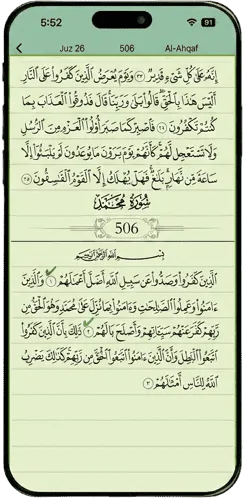 5:52
91
Juz 26 506 Al-Ahqaf
إِنَّهُۥ عَلَىٰ كُلِّ شَىْءٍ قَدِيرٌ ٣٣ وَيَوْمَ يُعْرَضُ ٱلَّذِينَ كَفَرُوا۟ عَلَى ٱلنَّارِ
أَلَيْسَ هَٰذَا بِٱلْحَقِّ ۖ قَالُوا۟ بَلَىٰ وَرَبِّنَا ۚ قَالَ فَذُوقُوا۟ ٱلْعَذَابَ بِمَا
كُنتُمْ تَكْفُرُونَ ٣٤ فَٱصْبِرْ كَمَا صَبَرَ أُو۟لُوا۟ ٱلْعَزْمِ مِنَ ٱلرُّسُلِ
وَلَا تَسْتَعْجِل لَّهُمْ ۚ كَأَنَّهُمْ يَوْمَ يَرَوْنَ مَا يُوعَدُونَ لَمْ يَلْبَثُوٓا۟ إِلَّا
سَاعَةً مِّن نَّهَارٍۭ ۚ بَلَٰغٌ ۚ فَهَلْ يُهْلَكُ إِلَّا ٱلْقَوْمُ ٱلْفَٰسِقُونَ ٣٥
سُورَةُ مُحَمَّد
506
بِسْمِ ٱللَّهِ ٱلرَّحْمَٰنِ ٱلرَّحِيمِ
ٱلَّذِينَ كَفَرُوا۟ وَصَدُّوا۟ عَن سَبِيلِ ٱللَّهِ أَضَلَّ أَعْمَٰلَهُمْ ١ وَٱلَّذِينَ
ءَامَنُوا۟ وَعَمِلُوا۟ ٱلصَّٰلِحَٰتِ وَءَامَنُوا۟ بِمَا نُزِّلَ عَلَىٰ مُحَمَّدٍ وَهُوَ ٱلْحَقُّ مِن
رَّبِّهِمْ ۙ كَفَّرَ عَنْهُمْ سَيِّـَٔاتِهِمْ وَأَصْلَحَ بَالَهُمْ ٢ ذَٰلِكَ بِأَنَّ ٱلَّذِينَ كَفَرُوا۟
ٱتَّبَعُوا۟ ٱلْبَٰطِلَ وَأَنَّ ٱلَّذِينَ ءَامَنُوا۟ ٱتَّبَعُوا۟ ٱلْحَقَّ مِن رَّبِّهِمْ ۚ كَذَٰلِكَ يَضْرِبُ
ٱللَّهُ لِلنَّاسِ أَمْثَٰلَهُمْ ٣